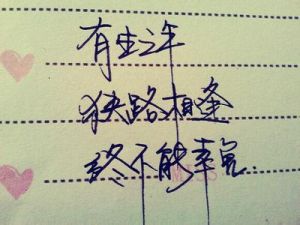 有生之年
狭路相逢
终不能幸免
MISS